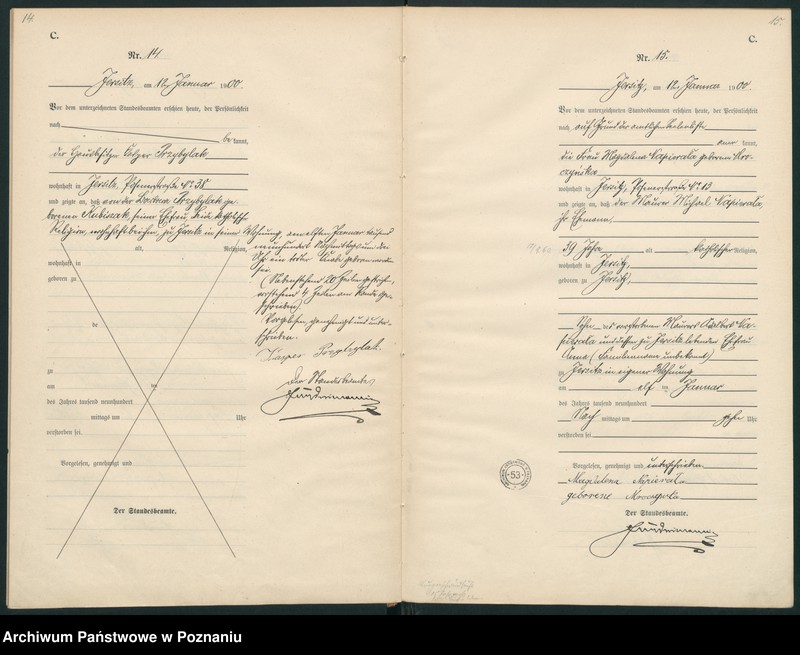 14.
C.
Nr. 14
Jersitz, am 12. Januar 1900
Vor dem unterzeichneten Standesbeamten erschien heute, der Persönlichkeit
nach
bekannt,
der Hausbesitzer Casper Przybylak
wohnhaft in Jersitz, Posenerstraße No. 38
und zeigte an, daß von der Przybylak ge-
borenen Kubiak, seiner Ehefrau, beide katholischer
Religion, wohnhaft bei ihm, zu Jersitz in seiner Wohnung, am elften Januar tausend
neunhundert Nachmittags um drei
Uhr ein todter Knabe geboren worden
sei.
(Nebenstehend 20 Zeilen gestrichen,
vorstehend 4 Zeilen am Rande ge-
schrieben)
Vorgelesen, genehmigt und unter-
schrieben.
Kasper Przybylak.
Der Standesbeamte
alt, Religion,
wohnhaft in
geboren zu
de
zu
am de
des Jahres tausend neunhundert
mittags um Uhr
verstorben sei.
Vorgelesen, genehmigt und
Der Standesbeamte.
15.
C.
Nr. 15.
Jersitz, am 12. Januar 1900
Vor dem unterzeichneten Standesbeamten erschien heute, der Persönlichkeit
nach auf Grund der
aner kannt,
die Frau Magdalena Napierala geborene
wohnhaft in Jersitz, Posenerstraße No. 13
und zeigte an, daß der Maurer Michael Napierala,
ihr Ehemann,
39 Jahre alt katholischer Religion,
wohnhaft in Jersitz,
geboren zu Jersitz,
Sohn des verstorbenen Maurers Na-
pierala und dessen zu Jersitz lebenden Ehefrau
Anna (Familienname unbekannt)
zu Jersitz in eigener Wohnung
am elf ten Januar
des Jahres tausend neunhundert
Nach mittags um zehn Uhr
verstorben sei.
Vorgelesen, genehmigt und unterschrieben
Magdalena Napierala
geborene
Der Standesbeamte.
53
Archiwum Państwowe w Poznaniu